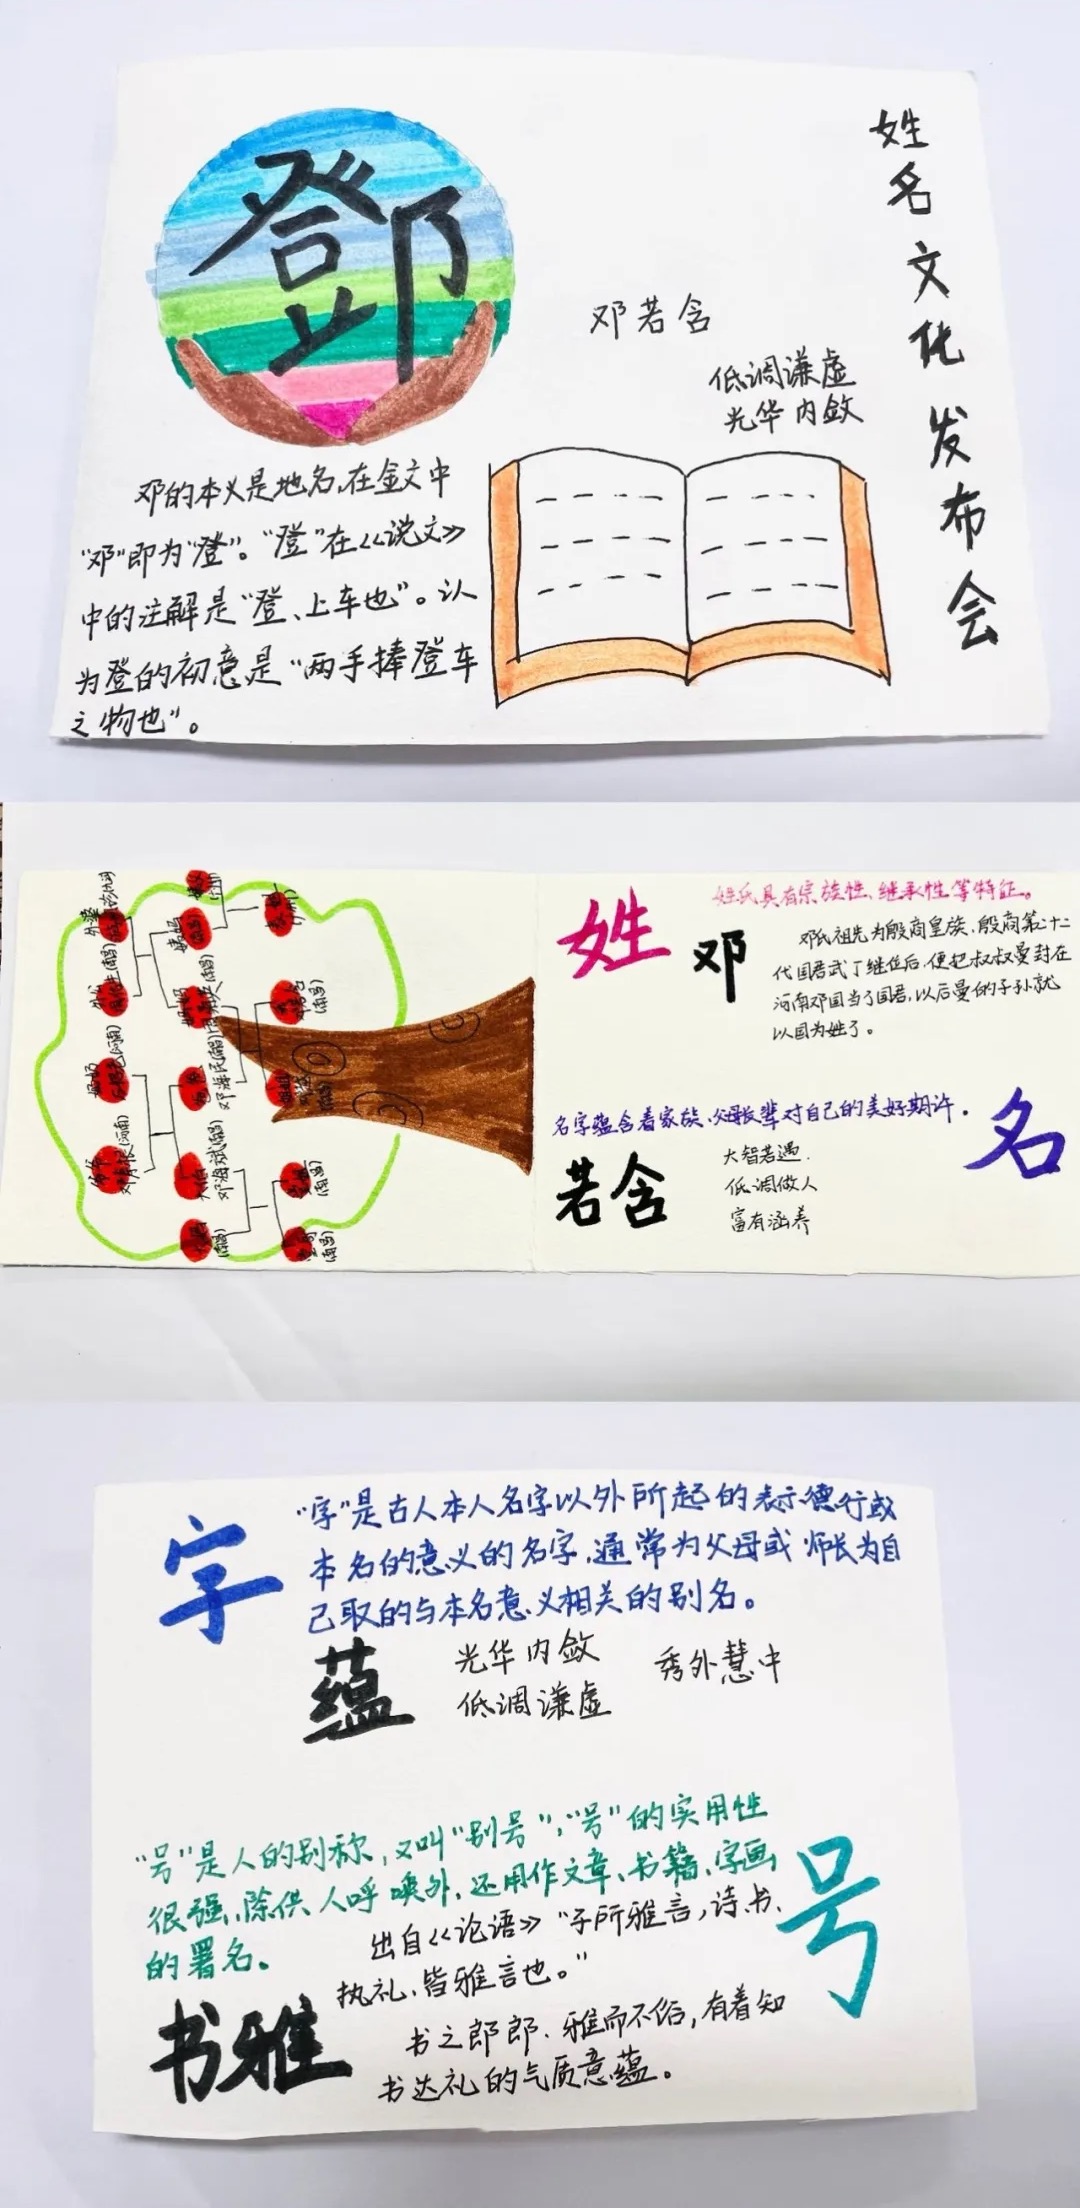 姓名文化发布会
鄧
邓若含
低调谦虚
光华内敛
邓的本义是地名,在金文中
“邓”即为“登”。“登”在《说文》
中的注解是“登、上车也”。认
为登的初意是“两手捧登车
之物也”。
姓
姓氏具有宗族性、继承性等特征。
邓
邓氏祖先为殷商皇族,殷商第二十二
代国君武丁继位后,便把叔叔曼封在
河南邓国当了国君,以后曼的子孙就
以国为姓了。
名字蕴含着家族、父母长辈对自己的美好期许。
名
若含
大智若遇.
低调做人
富有涵养
字
“字”是古人本人名字以外所起的表示德行或
本名的意义的名字,通常为父母或师长为自
己取的与本名意义相关的别名。
蕴
光华内敛
低调谦虚
秀外慧中
“号”是人的别称,又叫“别号”,“号”的实用性
很强,除供人呼唤外,还用作文章、书籍、字画
的署名。
号
出自《论语》“子所雅言,诗、书、
执礼、皆雅言也。”
书雅
书之郎郎、雅而不俗,有着知
书达礼的气质意蕴。